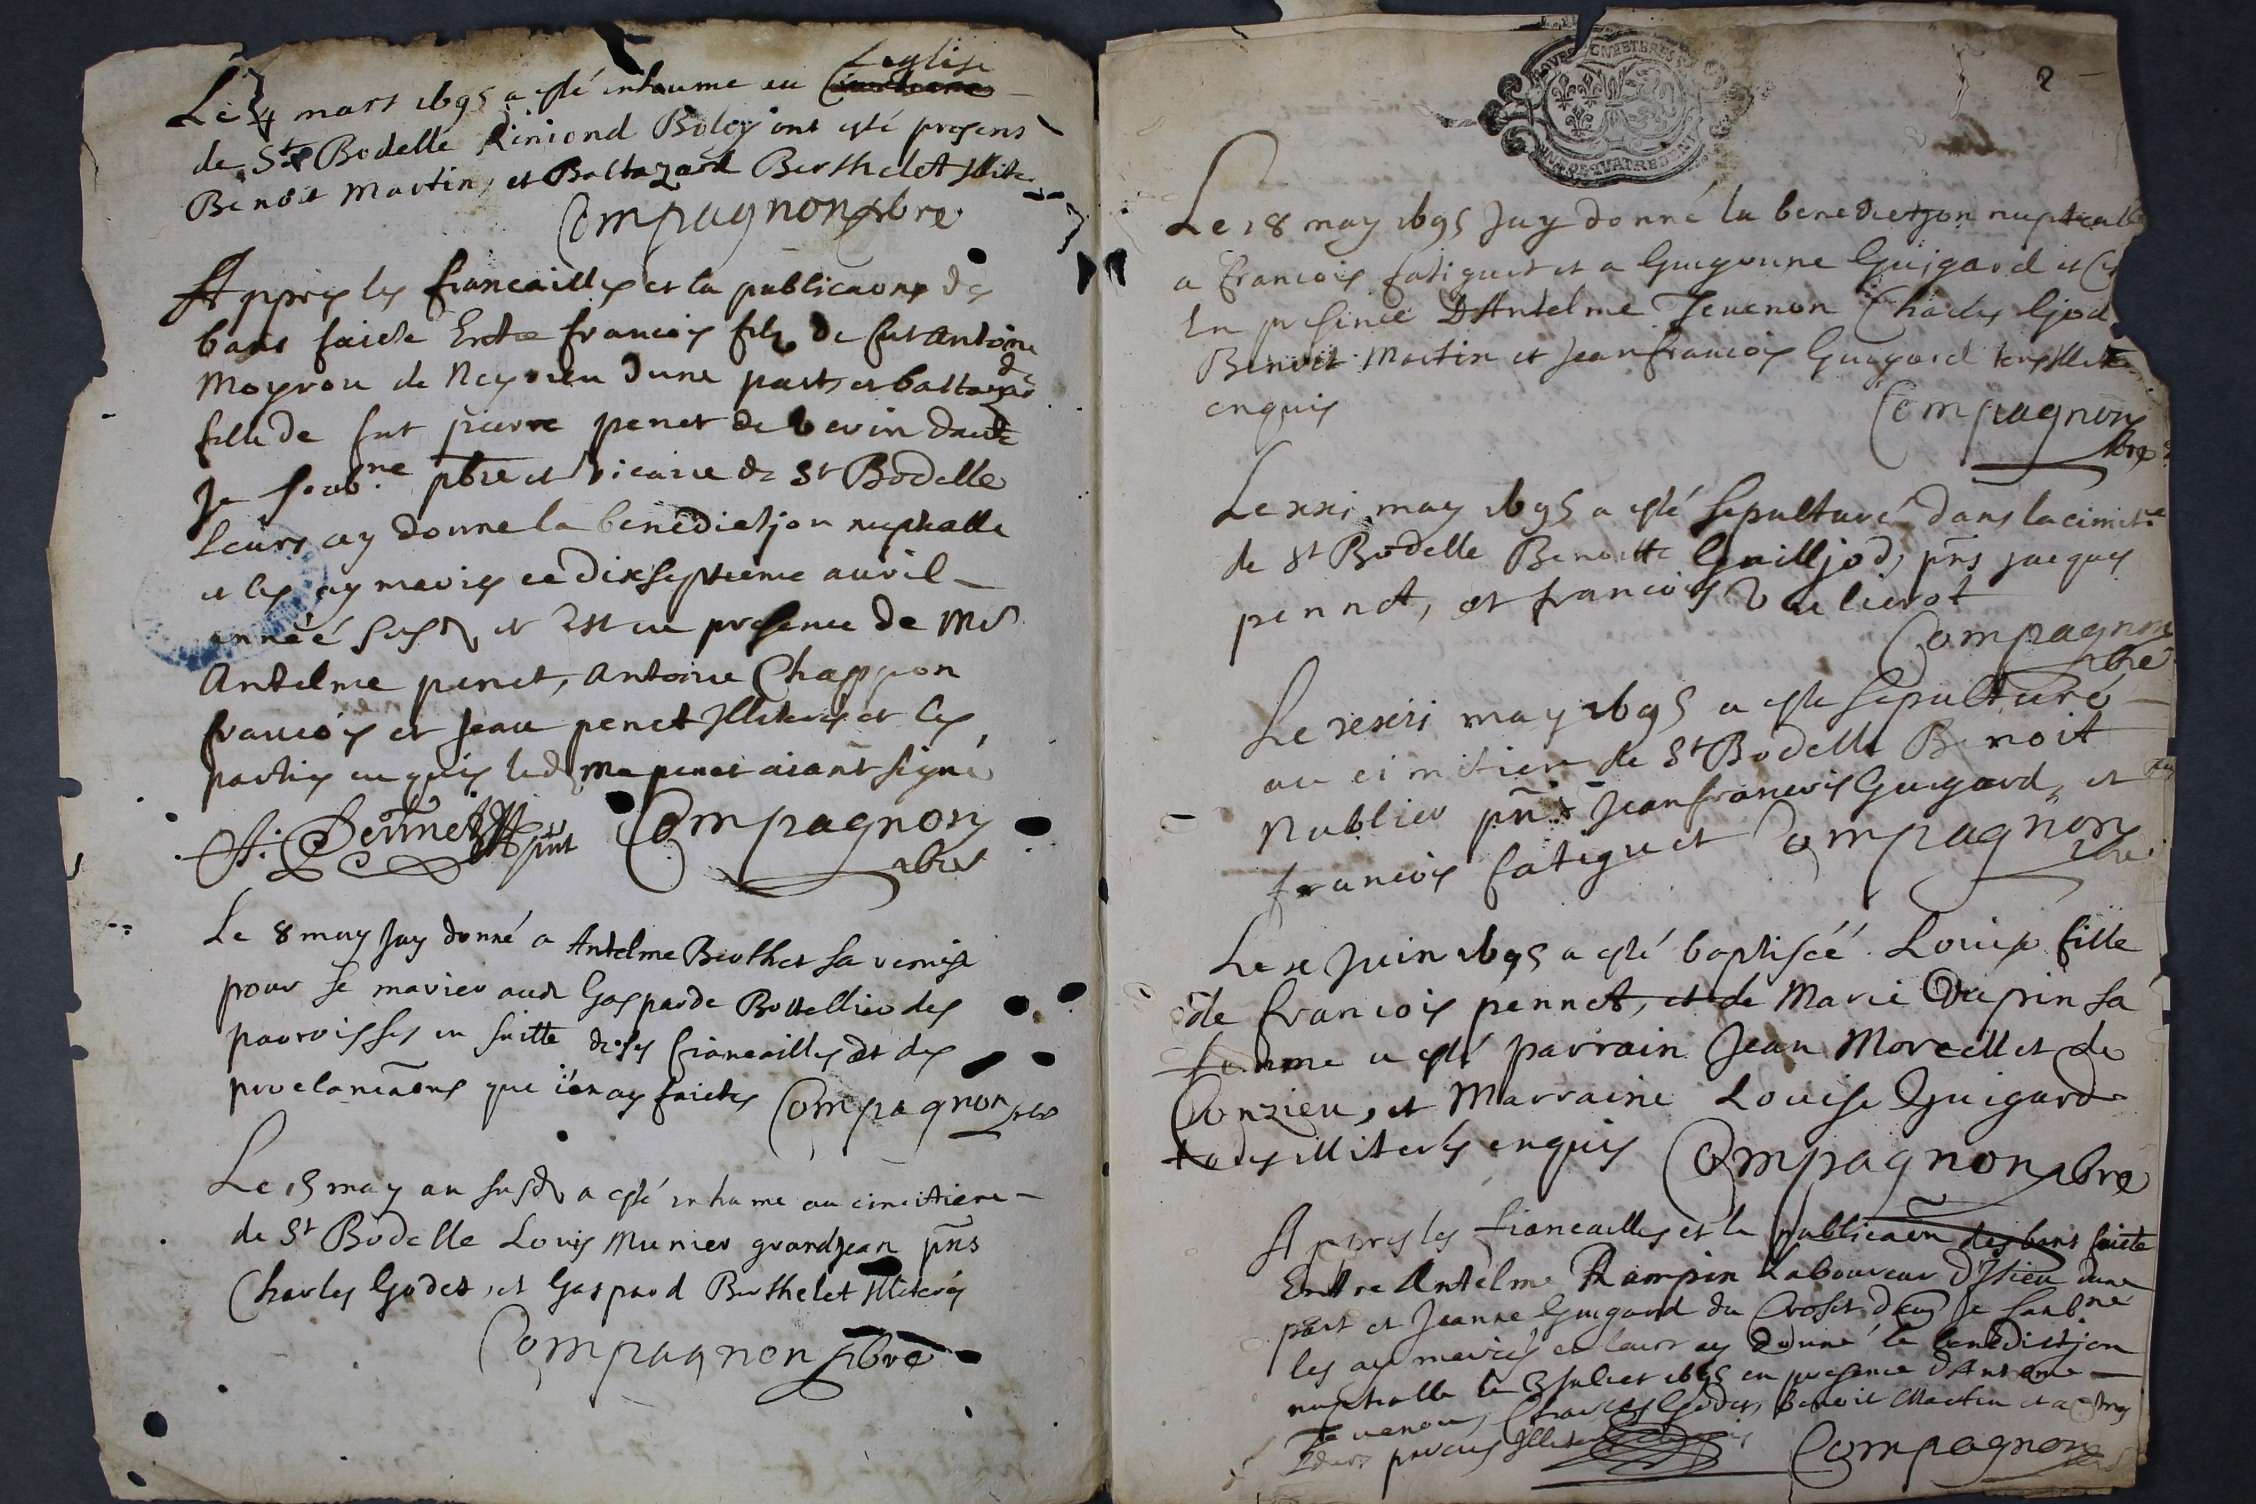 Le 4 mars 1695 a esté inhumé en L'eglise
de St Bodelle Rimond Boley ont esté presens
Benoit Martin, et Baltazard Berthelet Illite.
Compagnon pbre
Appres les fiancailles et la publicaõns des
bans faicte Entre francois fils de fut Antoine
Moyrou de Neyrieu dune part et baltazarde
fille de fut pierre penet de vevin dautre
Je soubne pbre et vicaire de St Bodelle
Leurs ay donne la benedictjon nuptialle
et les ay maries ce dixseptieme auvril
année susd et est en presence de Mr
Antelme penet, Antoine Chappon
francois et Jean penet Illiteres et les
parties enquis led Me penet aiant signé
A. Pennet pnt Compagnon
pbre
Le 8 may Jay donné a Antelme Berthet sa remise
pour se marier auec Gasparde Bottellier des
parroisses en suitte de ses fiancailles et des
proclamaõns que i'en ay faictes Compagnon pbre
Le 15 may an susd a esté inhumé au cimitiere
de St Bodelle Louis Munier grandjean pñs
Charles Godet, et Gaspard Berthelet Illiterés
Compagnon pbre
2
Le 18 may 1695 Jay donné la benedictjon nuptialle
a francois fatiguet et a Guigonne Guigard et ce
En presence D'Antelme Teuenon Charles
Benoit Martin et Jean francois Guigard tous Illite
enquis
Compagnon
pbre
Le xxi may 1695 a esté sepulturé dans la cimit.re
de St Bodelle Benoitte Guilljod, pñs jacques
pennet, et francois Vulierot
Compagnon
pbre
Le xxiii may 1695 a esté sepulturé
au cimitiere de St Bodelle Benoit
Nublier pñs Jean francois Guigard, et
francois fatiguet Compagnon
pbre
Le x Juin 1695 a esté baptiséé Louise fille
de francois pennet, et de Marie Dupin sa
femme a esté parrain Jean Morcellet de
Conzieu, et Marraine Louise Guigard
tous illiterés enquis Compagnon pbre
Appres les fiancailles et la publicaõn des bans faicte
Entre Antelme Rampin Laboureur D'Isieu dune
part et Jeanne Guigard du Croset d'au Je soubne
les ay mariés et leurs ay donné la benedictjon
nuptialle le 3 Juliet 1695 en presence d'Antelme
Teuenon, Charles Godet, Benoit Martin et autres
leurs parens Illiterés enquis
Compagnon pbre